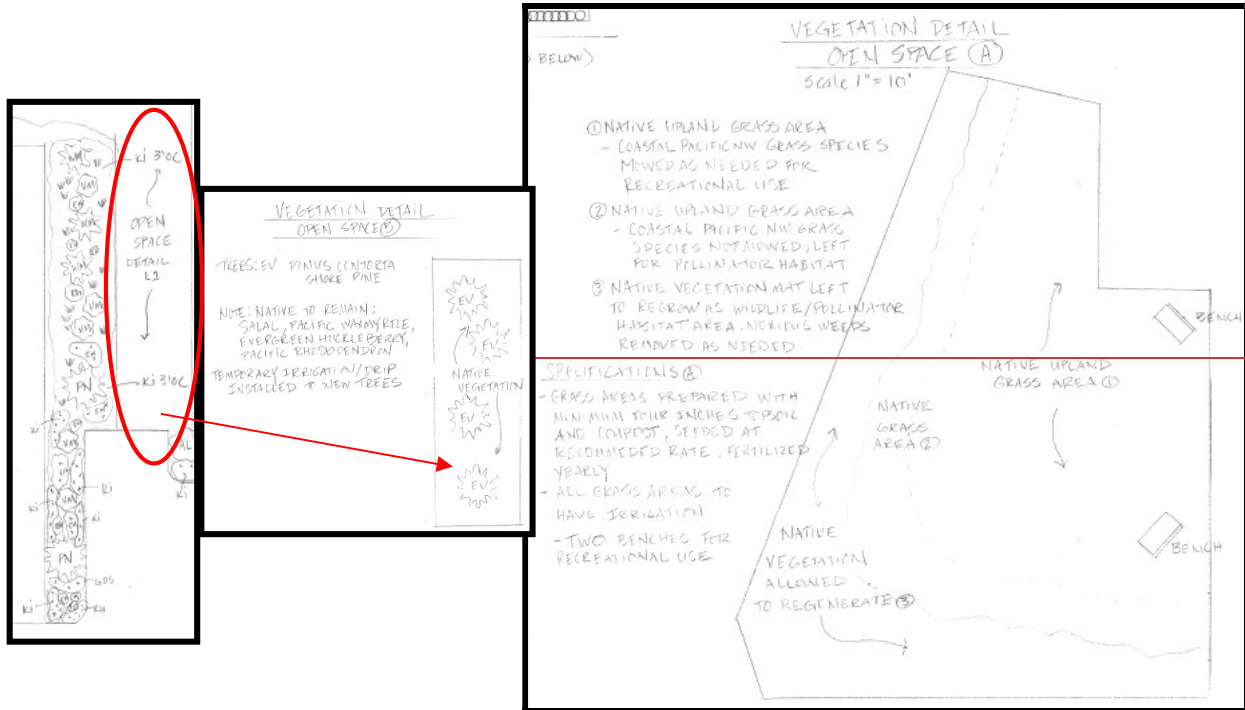 Ki 3'OC
OPEN
SPACE
DETAIL
L1
Ki 3'OC
PN
Ki
Ki
PN
GDS
Ki
RH
AL
Ki
VEGETATION DETAIL
OPEN SPACE Ⓑ
TREES: EV PINUS CONTORTA
SHORE PINE
NOTE: NATIVE TO REMAIN:
SALAL, PACIFIC WAXMYRTLE,
EVERGREEN HUCKLEBERRY,
PACIFIC RHODODENDRON
TEMPORARY IRRIGATION/DRIP
INSTALLED TO NEW TREES
EV
EV
NATIVE
VEGETATION
EV
EV
BELOW)
VEGETATION DETAIL
OPEN SPACE Ⓐ
Scale 1"=10'
① NATIVE UPLAND GRASS AREA
- COASTAL PACIFIC NW GRASS SPECIES
MOWED AS NEEDED FOR
RECREATIONAL USE
② NATIVE UPLAND GRASS AREA
- COASTAL PACIFIC NW GRASS
SPECIES NOT MOWED; LEFT
FOR POLLINATOR HABITAT
③ NATIVE VEGETATION MAT LEFT
TO REGROW AS WILDLIFE/POLLINATOR
HABITAT AREA. NOXIOUS WEEDS
REMOVED AS NEEDED.
SPECIFICATIONS Ⓐ
- GRASS AREAS PREPARED WITH
MINIMUM FOUR INCHES TOPSOIL
AND COMPOST, SEEDED AT
RECOMMEDED RATE. FERTILIZED
YEARLY
- ALL GRASS AREAS TO
HAVE IRRIGATION
- TWO BENCHES FOR
RECREATIONAL USE
BENCH
NATIVE UPLAND
GRASS AREA ①
NATIVE
GRASS
AREA ②
BENCH
NATIVE
VEGETATION
ALLOWED
TO REGENERATE ③